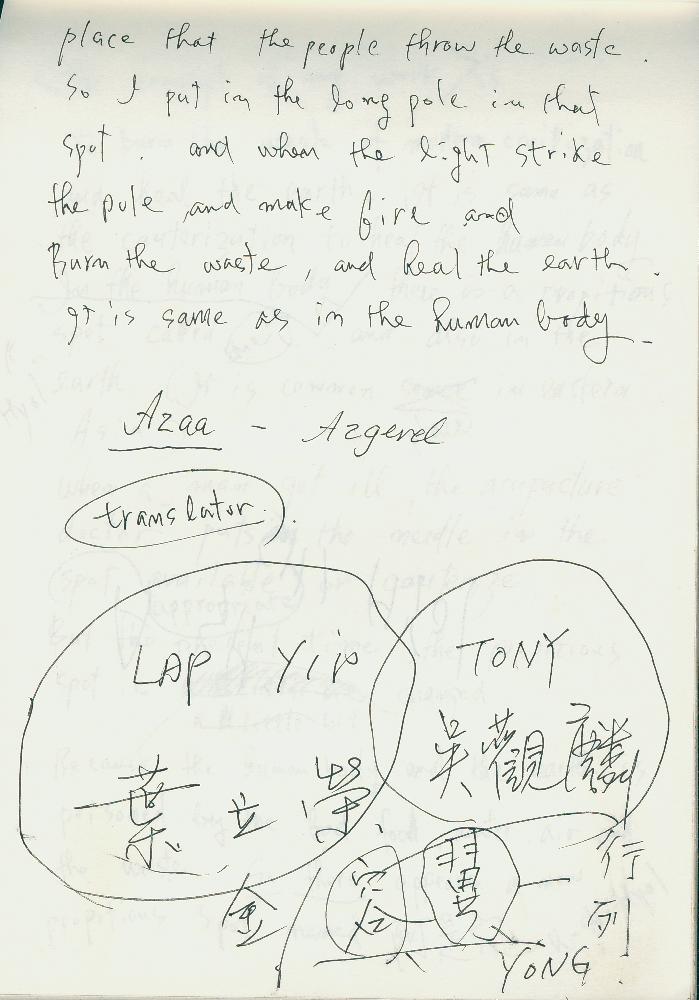 place that the people throw the waste.
So I put in the long pole in that
spot. and when the light strike
the pole and make fire and
Burn the waste, and heal the earth.
It is same as in the human body.
Azaa - Azgerel
translator.
LAP YIP TONY
葉立 吳觀麟
金容翼 — 行
列
YONG